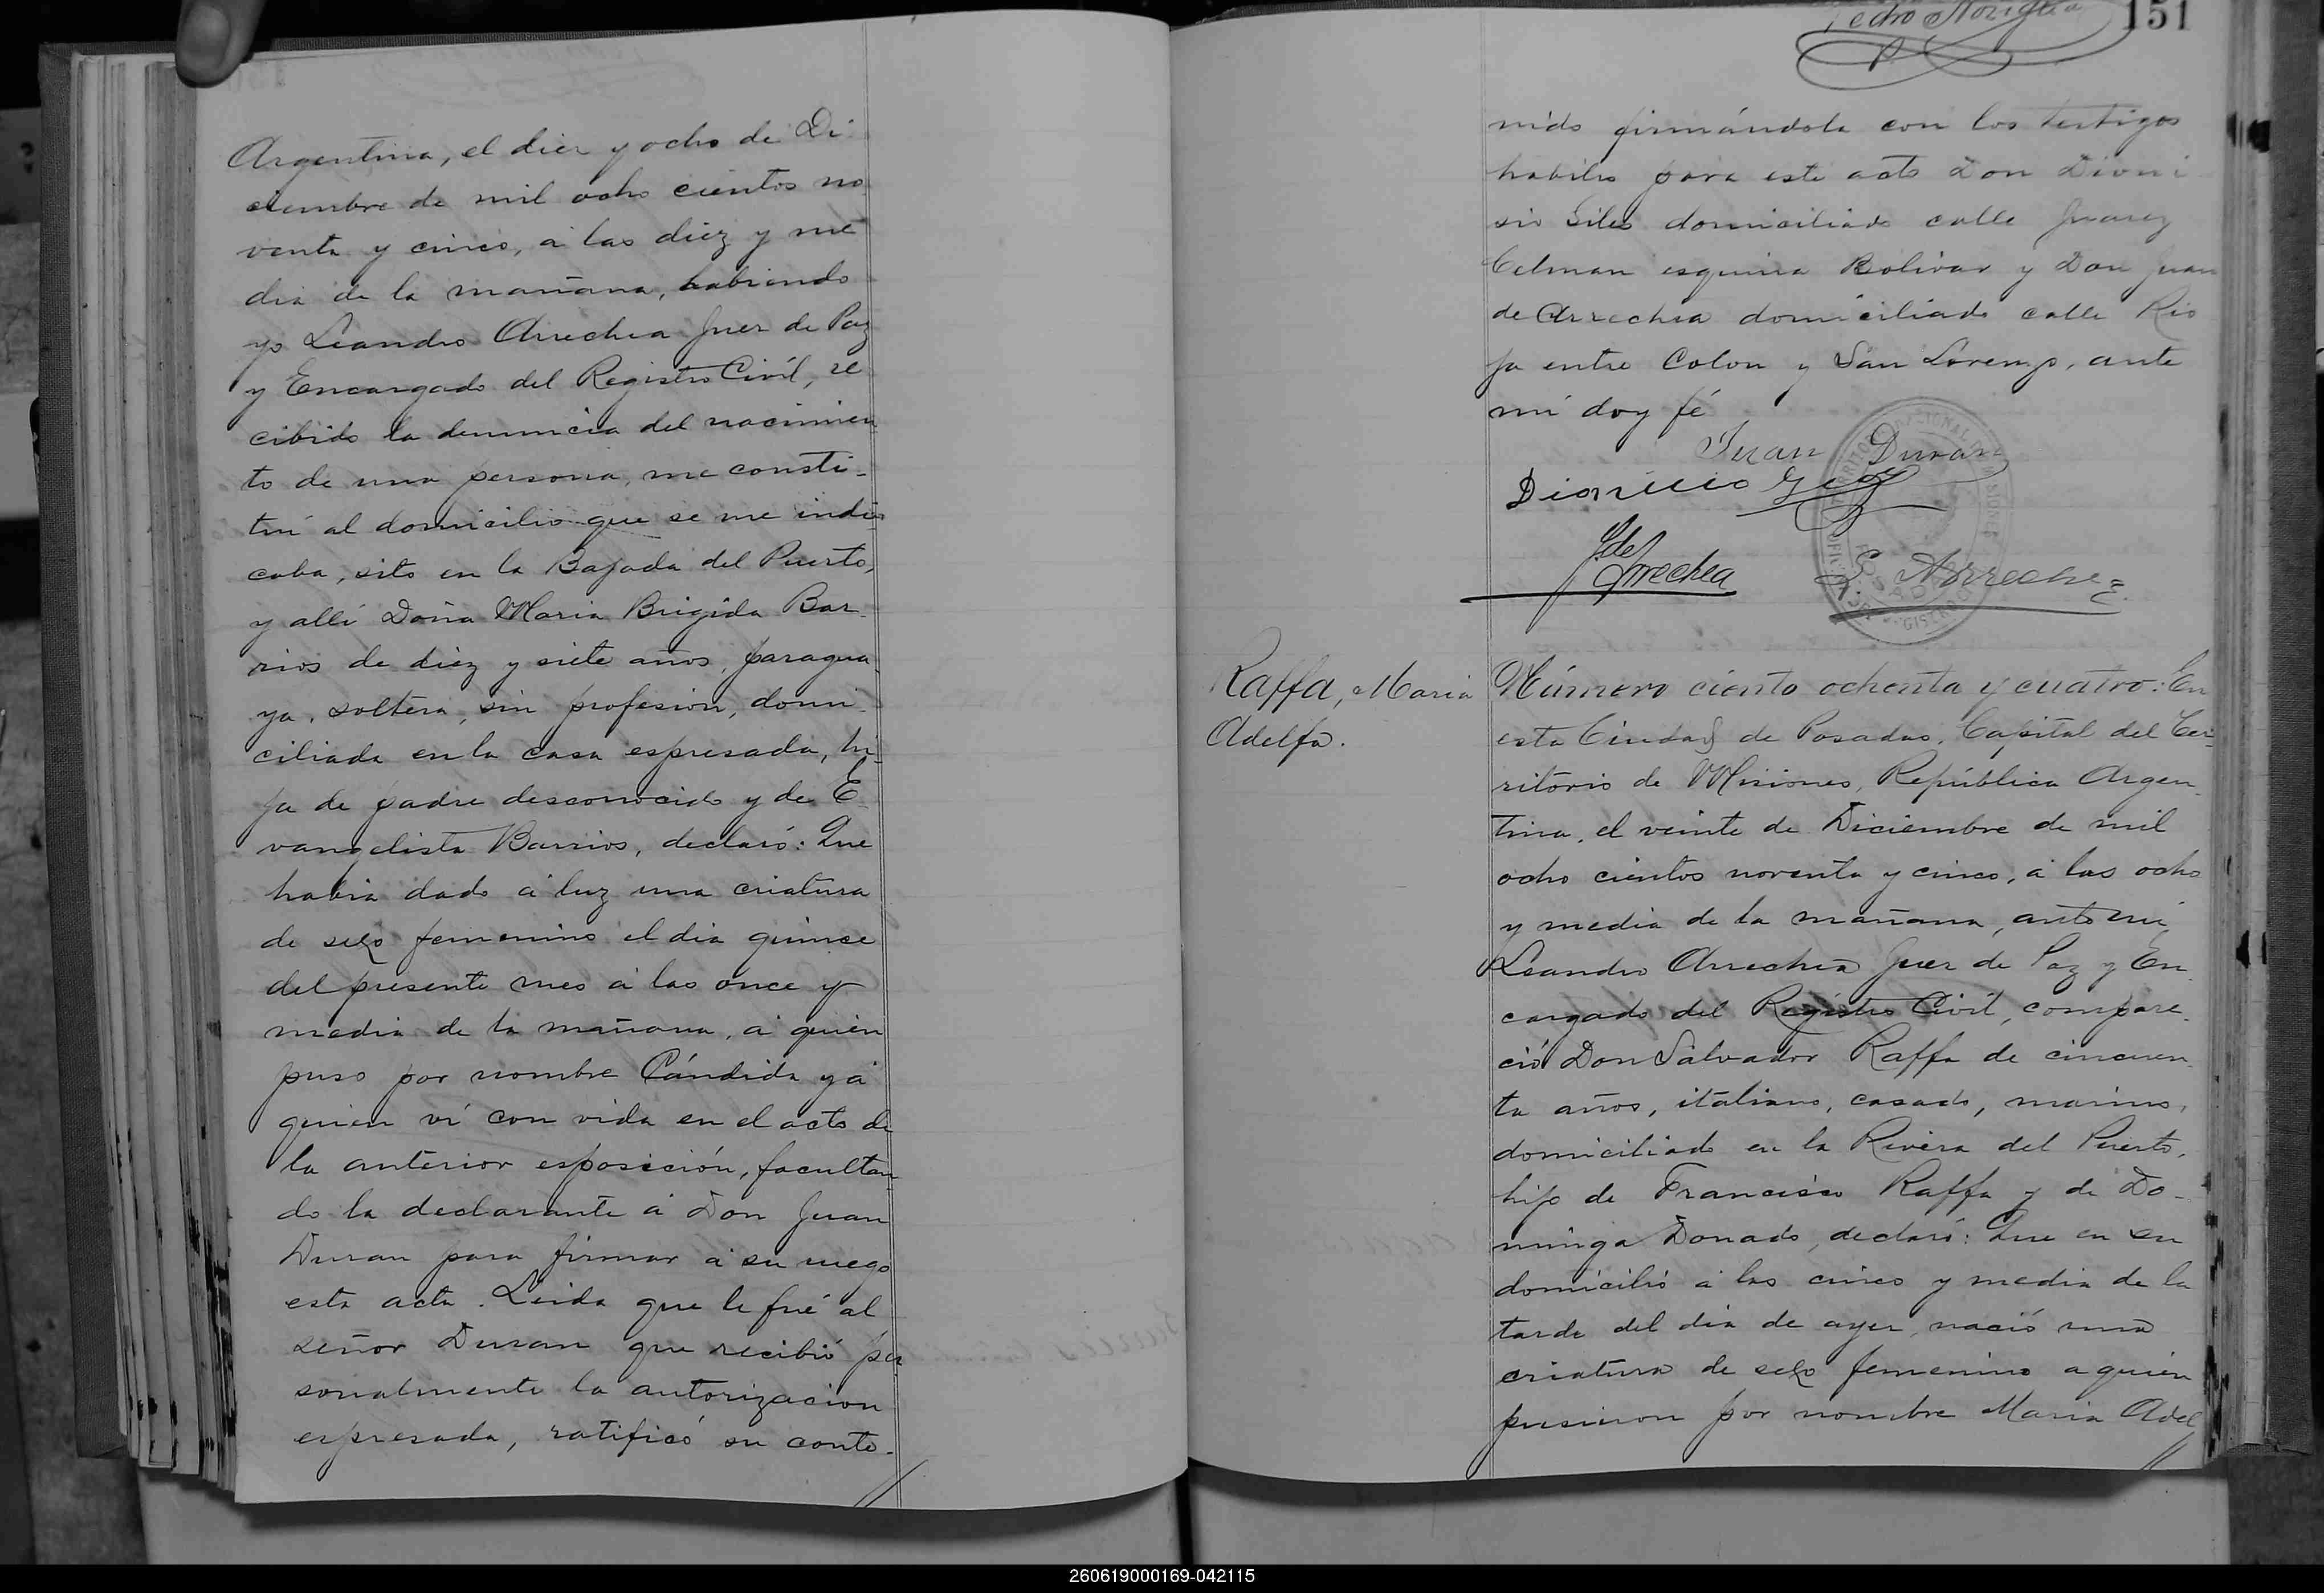 Argentina, el diez y ocho de Di-
ciembre de mil ocho cientos no
venta y cinco, á las diez y me
dia de la mañana, habiendo
yo Leandro Arrechea Juez de Paz
y Encargado del Registro Civíl, re
cibido la denuncia del nacimien
to de una persona, me consti-
tuí al domicilio que se me indi
caba, sito en la Bajada del Puerto,
y allí Doña Maria Brigida Bar-
rios de diez y siete años, paragua-
ya, soltera, sin profesion, domi-
ciliada en la casa espresada, hi-
ja de padre desconocido y de E-
vangelista Barrios, declaró: Que
habia dado á luz una criatura
de sexo femenino el dia quince
del presente mes á las once y
media de la mañana, á quien
puso por nombre Cándida y á
quien ví con vida en el acto de
la anterior esposición, facultan
do la declarante á Don Juan
Duran para firmar á su ruego
esta acta. Leida que le fué al
señor Duran que recibió per
sonalmente la autorizacion
espresada, ratificó su conte-
Pedro Noriega
151
nido firmándola con los testigos
habiles para este acto Don Dioni
sio Giles domiciliado calle Juarez
Celman esquina Bolivar y Don Juan
de Arrechea domiciliado calle Rio
ja entre Colon y San Lorenzo, ante
mí doy fé
Juan Duran
Dionicio
J de Arrechea
L. Arrechea
Raffa, Maria
Adelfa.
Número ciento ochenta y cuatro: En
esta Ciudad de Posadas, Capital del Ter-
ritorio de Misiones, República Argen-
tina, el veinte de Diciembre de mil
ocho cientos noventa y cinco, á las ocho
y media de la mañana, ante mí,
Leandro Arrechea Juez de Paz y En-
cargado del Registro Civil, compare-
ció Don Salvador Raffa de cincuen-
ta años, italiano, casado, marino,
domiciliado en la Rivera del Puerto,
hijo de Francisco Raffa y de Do-
minga Donado, declaró: Que en su
domicilió á las cinco y media de la
tarde del dia de ayer, nació una
criatura de sexo femenino a quien
pusieron por nombre Maria Adel
260619000169-042115